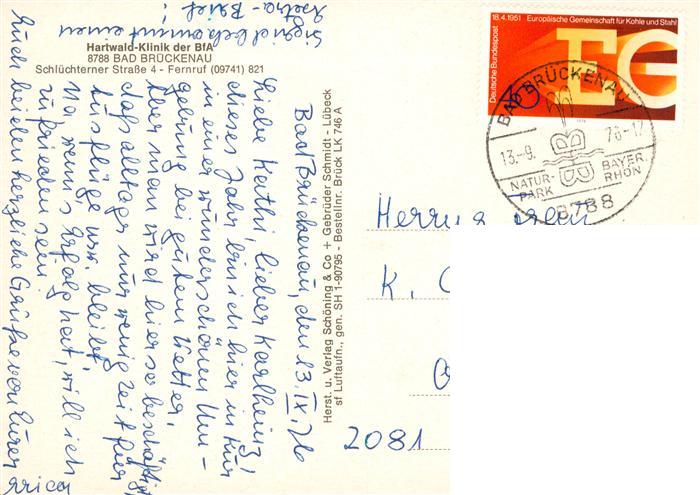 Sigrid bekommt einen
Extra-Brief!
Hartwald-Klinik der BfA
8788 BAD BRÜCKENAU
Schlüchterner Straße 4 - Fernruf (09741) 821
Bad Brückenau, den 13. IX. 76
Liebe Käthi, lieber Karlheinz,
dieses Jahr bin ich hier in Kur
in einer wunderschönen Um-
gebung bei gutem Wetter,
Aber man wird hier so beschäftigt
daß alltags nur wenig Zeit für
Ausflüge usw. bleibt.
Na, wenn's Erfolg hat, will ich
zufrieden sein.
Euch beiden herzliche Grüße von Eurer
Erica
Herst. u. Verlag Schöning & Co + Gebrüder Schmidt - Lübeck
sf Luftaufn., gen. SH 1-90795 - Bestellnr. Brück LK 746 A
18.4.1951 Europäische Gemeinschaft für Kohle und Stahl
Deutsche Bundespost
EG
BAD BRÜCKENAU
13.-9. 76-17
NATUR-
PARK
BAYER.
RHÖN
8788
Herrn u.
K.
2081